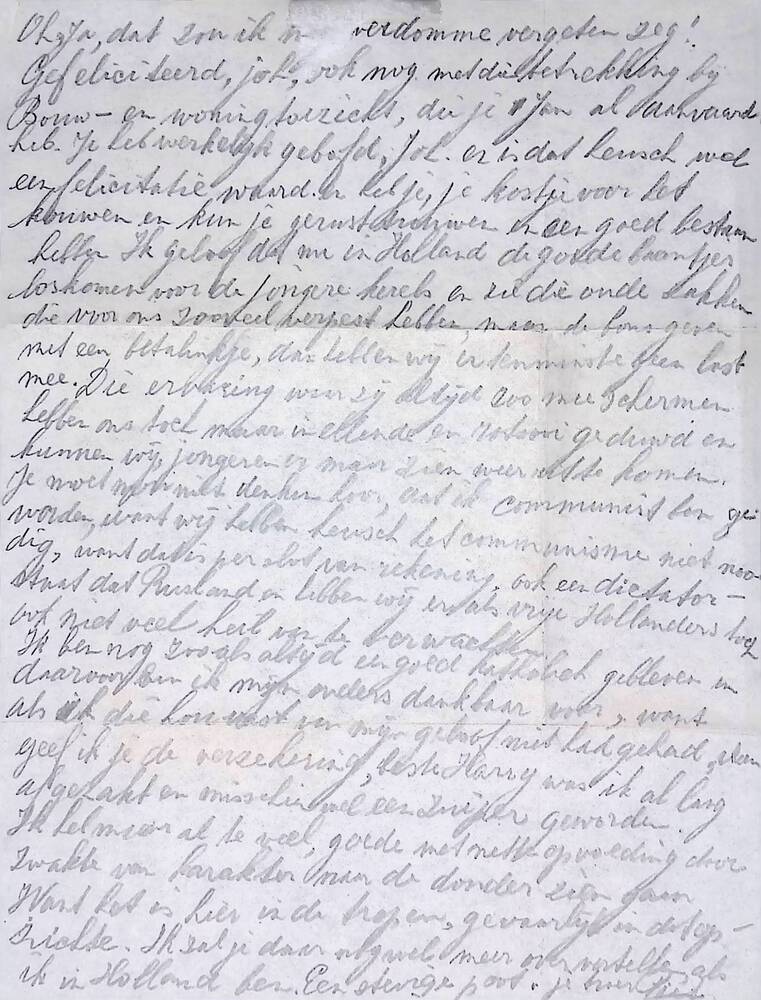 Oh, ja, dat zou ik n verdomme vergeten zeg!
Gefeliciteerd, joh, ook nog met die betrekking bij
Bouw- en woningtoezicht, die je 1 Jan al aanvaard
heb. Je heb werkelijk geboft, Joh. er is dat heusch wel
een felicitatie, waard. en heb je, je kostje voor het
kouwen en kun je gerust trouwen en een goed bestaan
hebben Ik geloof dat me in Holland de goede baantjes
loskomen voor de jongere kerels en zie die oude zakken
die voor ons zooveel verpest hebben, maar de bons geven
met een betalinkje, dan hebben wij er tenminste geen last
mee. Die ervaring waar zij altijd zoo mee schermen
hebben ons toch maar in ellende en rotzooi geduwd en
kunnen wij, jongeren er maar zien weer uit te komen.
Je moet nou niet denken hoor, dat ik communist ben ge-
worden, want wij hebben heusch het communisme niet noo-
dig, want dat is per slot van rekening, ook een dictator-
staat dat Rusland en hebben wij er als vrije Hollanders toch
ook niet veel heil van te verwachten.
Ik ben nog zooals altijd een goed katholiek gebleven en
daarvoor ben ik mijn ouders dankbaar voor, want
als ik die hou vast van mijn geloof niet had gehad, dan
geef ik je de verzekering, beste Harry was ik al lang
afgezakt en misschien wel een zuiper geworden.
Ik heb maar al te veel, goede met nette opvoeding door
zwakte van karakter naar de donder zien gaan
Want het is hier in de tropen, gevaarlijk in dat op-
zichte. Ik zal je daar nog wel meer over vertellen als
ik in Holland ben. Een stevige poot. je